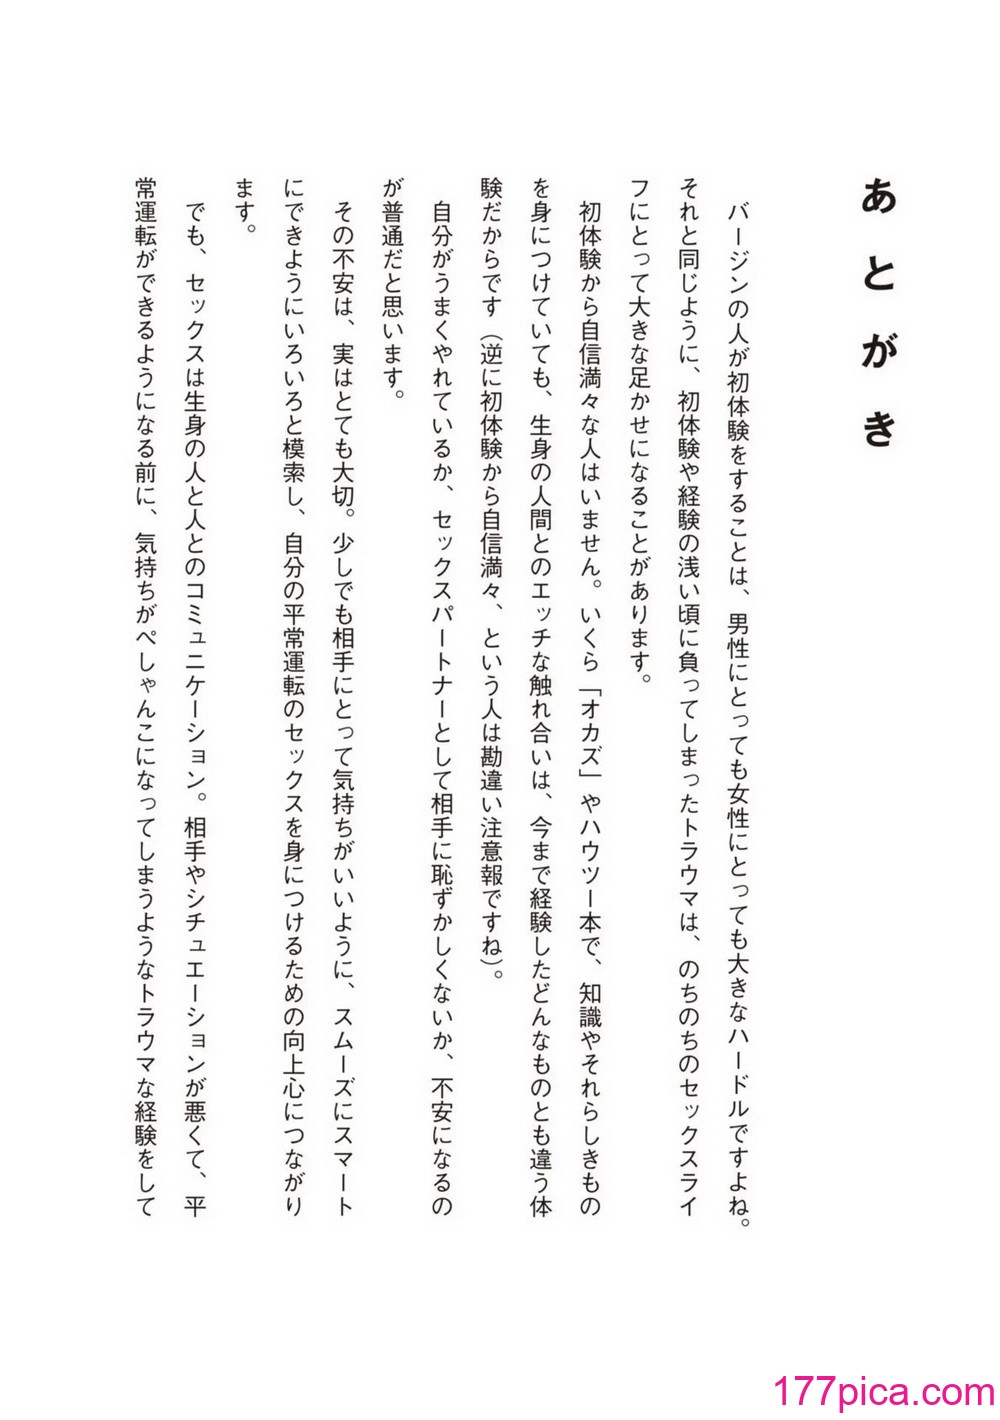 あとがき
バージンの人が初体験をすることは、男性にとっても女性にとっても大きなハードルですよね。
それと同じように、初体験や経験の浅い頃に負ってしまったトラウマは、のちのちのセックスライ
フにとって大きな足かせになることがあります。
初体験から自信満々な人はいません。いくら「オカズ」やハウツー本で、知識やそれらしきもの
を身につけていても、生身の人間とのエッチな触れ合いは、今まで経験したどんなものとも違う体
験だからです（逆に初体験から自信満々、という人は勘違い注意報ですね）。
自分がうまくやれているか、セックスパートナーとして相手に恥ずかしくないか、不安になるの
が普通だと思います。
その不安は、実はとても大切。少しでも相手にとって気持ちがいいように、スムーズにスマート
にできようにいろいろと模索し、自分の平常運転のセックスを身につけるための向上心につながり
ます。
でも、セックスは生身の人と人とのコミュニケーション。相手やシチュエーションが悪くて、平
常運転ができるようになる前に、気持ちがぺしゃんこになってしまうようなトラウマな経験をして
177pica.com